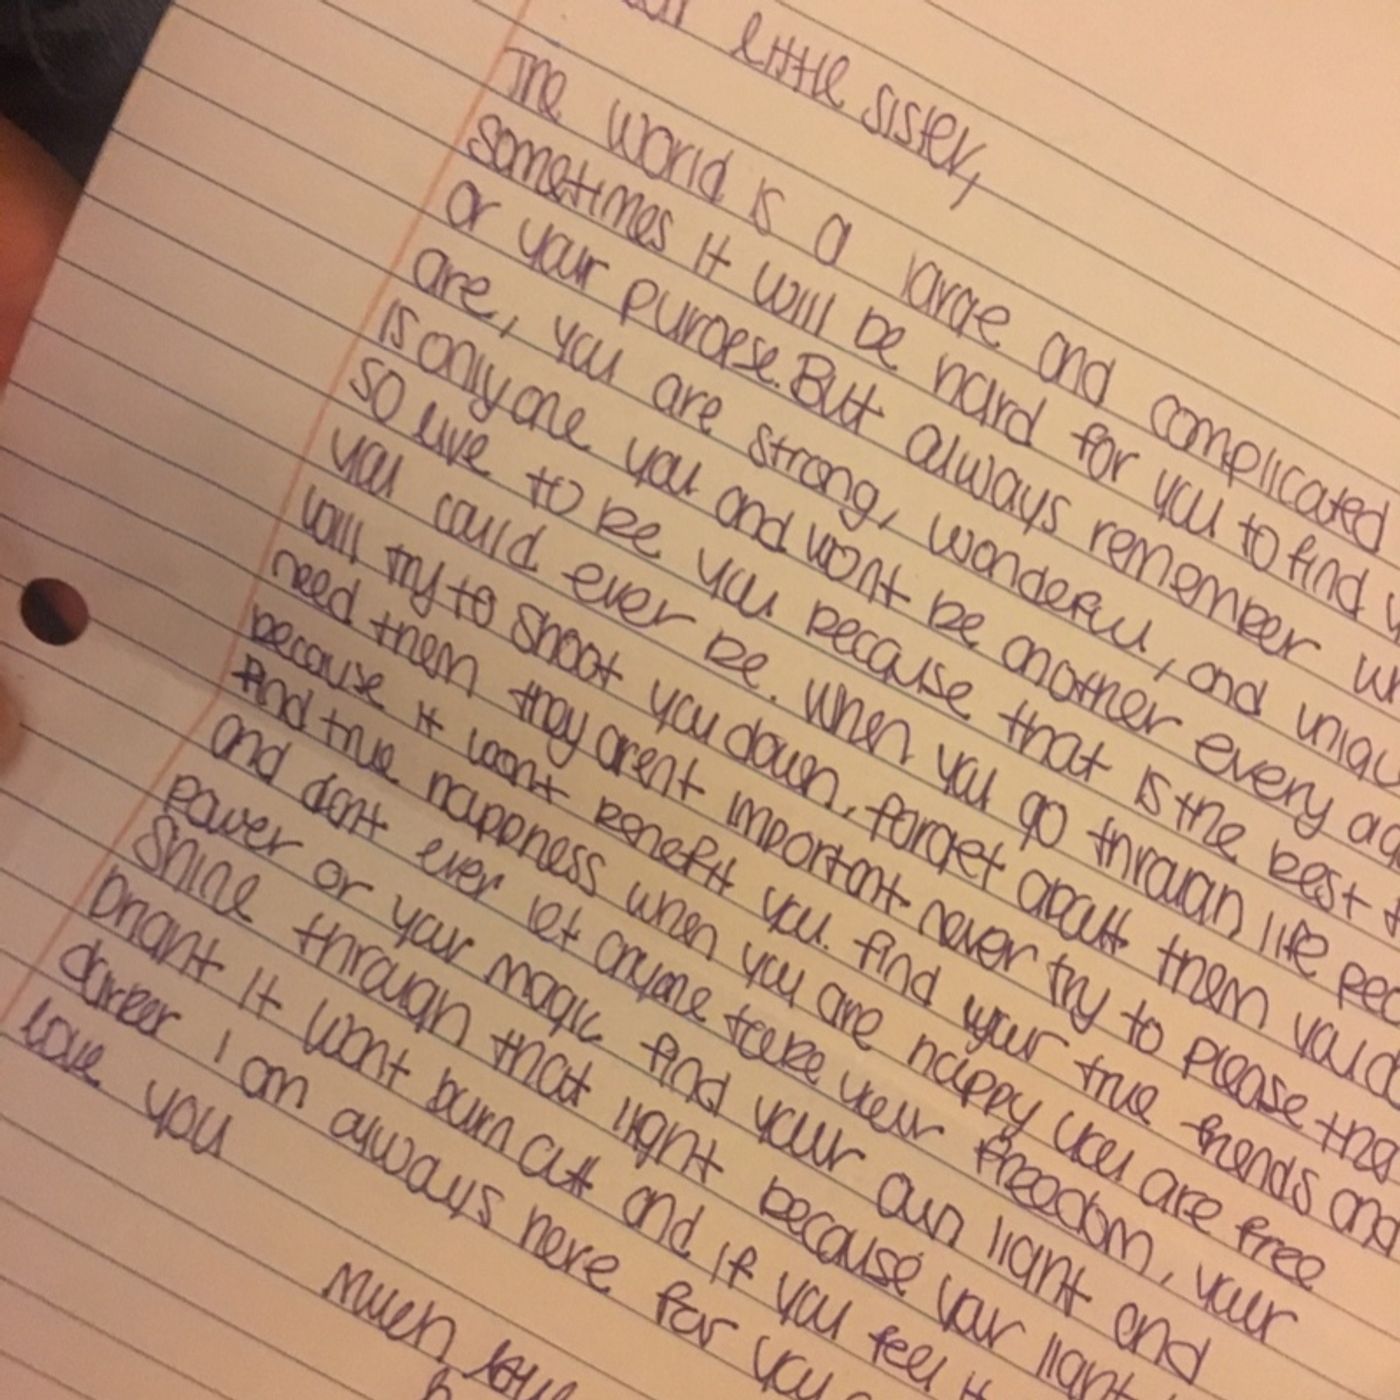 little sister,
The world is a large and complicated
sometimes it will be hard for you to find
or your purpose. But always remember
are, you are strong, wonderful, and
is only one you and wont be another every
so live to be you because that is the best
you could ever be. When you go through life
will try to shoot you down, forget about them
need them they arent important never try to please
because it wont benefit you. find your true friends and
find true happness when you are happy you are free
and dont ever let anyone take your freedom, your
power or your magic find your own light and
shine through that light because your light
bright it wont burn out and if you feel it
darker I am always here for you
love you
Much love